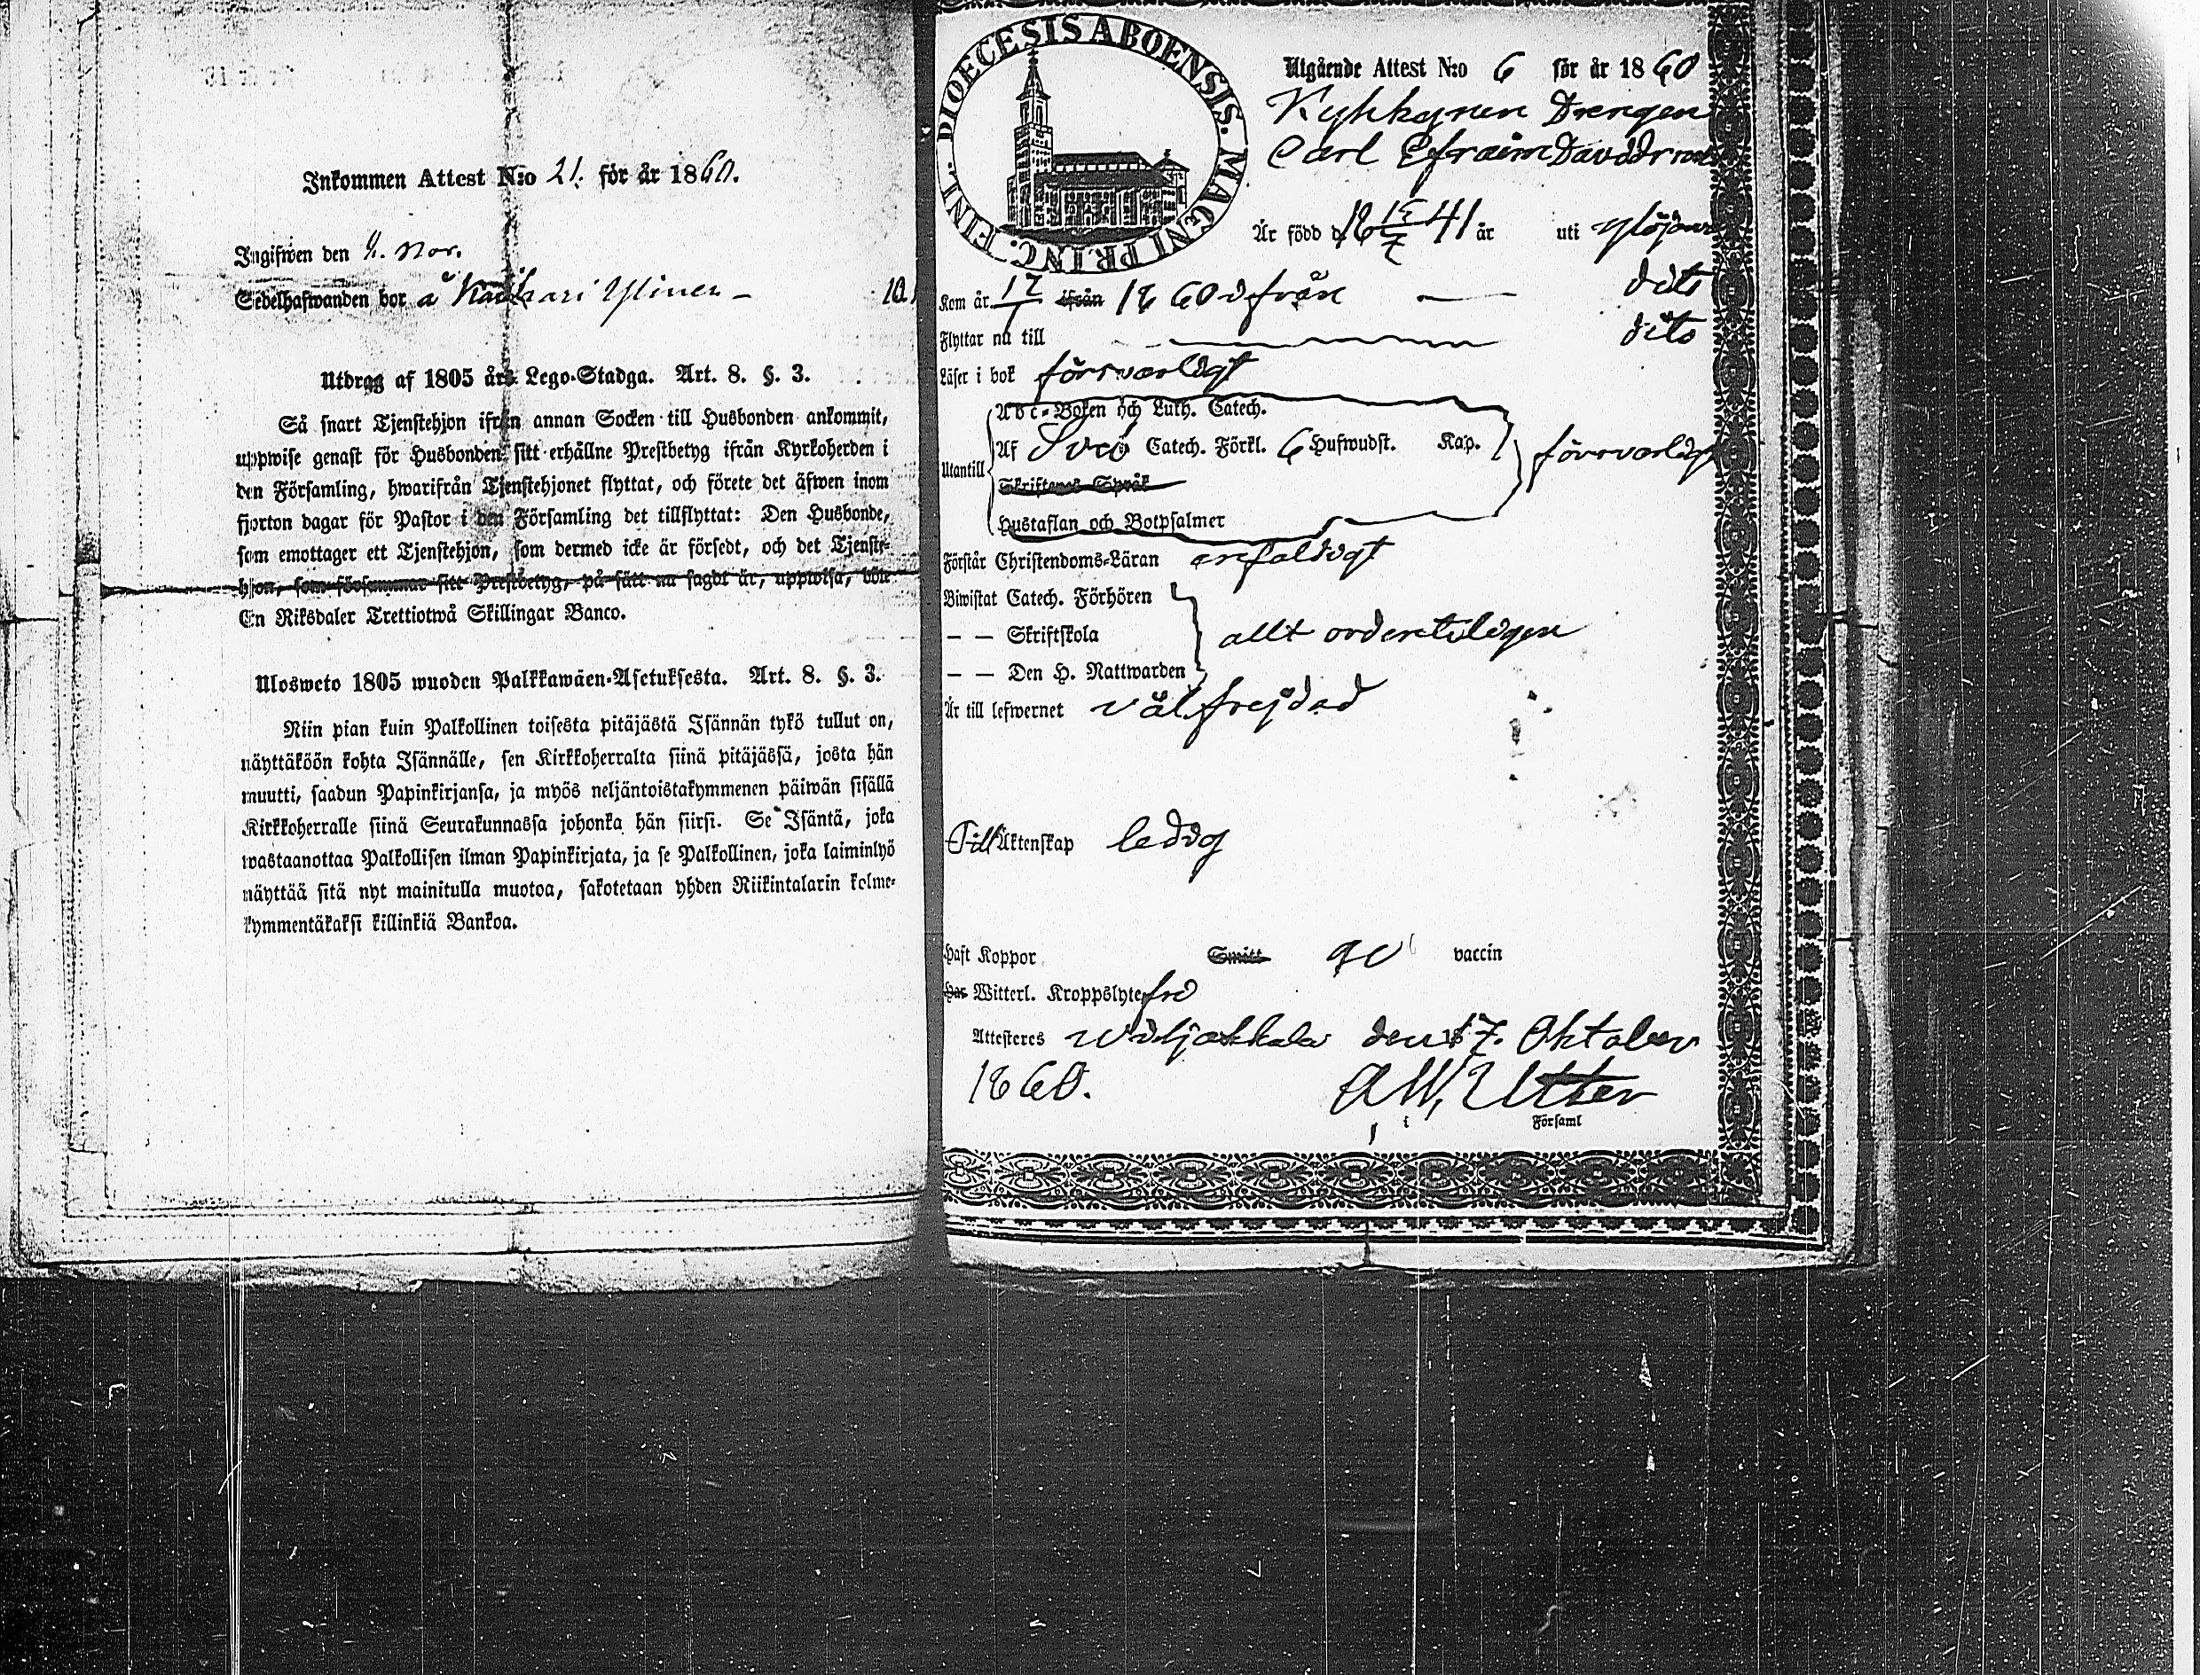 Inkommen Attest N:o 21. för år 1860.
Ingifwen den
Sedelhafwanden bor å
Utdrag af 1805 års Lego-Stadga. Art. 8. §. 3.
Så snart Tjenstehjon ifrån annan Socken till Husbonden ankommit,
uppwise genast för Husbonden sitt erhållne Prestbetyg ifrån Kyrkoherden i
den Församling, hwarifrån Tjenstehjonet flyttat, och förete det äfwen inom
fjorton dagar för Pastor i den Församling det tillflyttat: Den Husbonde,
som emottager ett Tjenstehjon, som dermed icke är försedt, och det Tjenste-
hjon, som försummar sitt Prestbetyg, på sätt nu sagdt är, uppwisa, böte
En Riksdaler Trettiotwå Skillingar Banco.
Ulosweto 1805 wuoden Palkkawäen-Asetuksesta. Art. 8. §. 3.
Niin pian kuin Palkollinen toisesta pitäjästä Isännän tykö tullut on,
näyttäköön kohta Isännälle, sen Kirkkoherralta siinä pitäjässä, josta hän
muutti, saadun Papinkirjansa, ja myös neljäntoistakymmenen päiwän sisällä
Kirkkoherralle siinä Seurakunnassa johonka hän siirsi. Se Isäntä, joka
wastaanottaa Palkollisen ilman Papinkirjata, ja se Palkollinen, joka laiminlyö
näyttää sitä nyt mainitulla muotoa, sakotetaan yhden Riikintalarin kolme-
kymmentäkaksi killinkiä Bankoa.
DIOECESIS ABOENSIS. MAGNI PRINC. FINL.
Utgående Attest N:o 6 för år 1860
Kyhkynen Drengen
Carl Efraim
Är född d 18 41 år uti Ylöjärvi
Kom år 17 ifrån 1860 ifrån dito
Flyttar nu till dito
Läser i bok försvarligt
Utantill
Abc-Boken och Luth. Catech.
Af Sveb Catech. Förkl. 6 Hufwudst. Kap. försvarligt
Skriftenes Språk
Hustaflan och Botpsalmer
Förstår Christendoms-Läran enfaldigt
Biwistat Catech. Förhören
— — Skriftskola allt ordentligen
— — Den H. Nattwarden
Är till lefwernet välfrejdad
Till Äktenskap ledig
Haft Koppor Smitt vaccin
Har Witterl. Kroppslyte fri
Attesteres Wiljakkala den 17. Oktober
1860. A W, Utter
i Församl